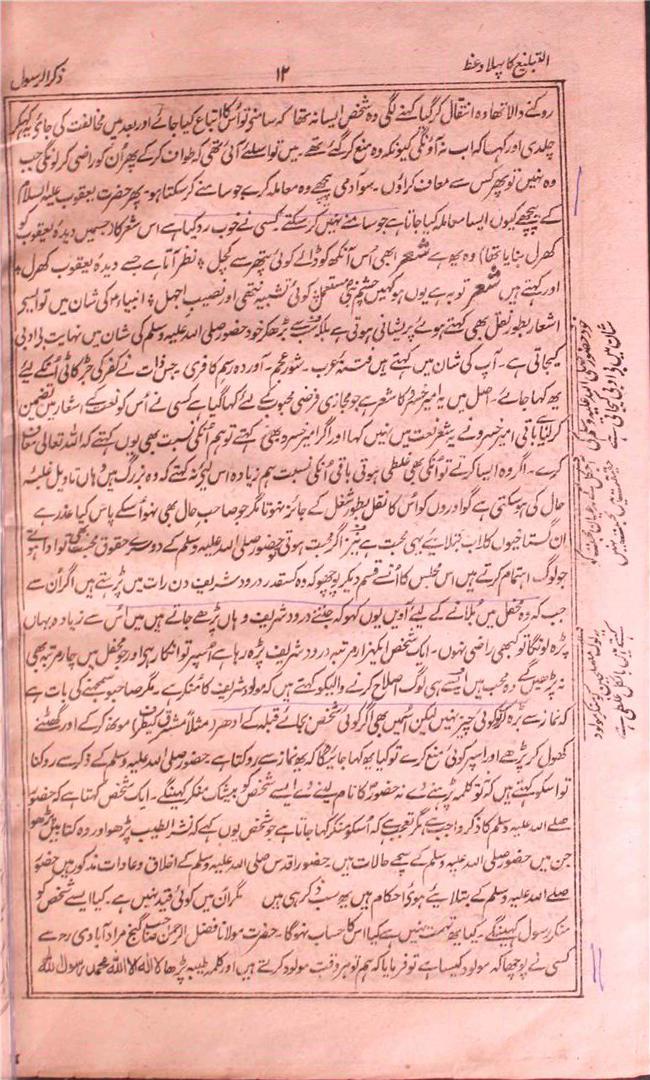 التبلیغ کا پہلا وعظ
۱۲
ذکر الرسول
روکنے والا تھا وہ انتقال کر گیا کہنے لگی وہ شخص ایسا نہ تھا کہ سامنے تو اُسکا اتباع کیا جائے اور بعد میں مخالفت کی جائے یہ کہکر
چلدی اور کہا کہ اب نہ آؤنگی کیونکہ وہ منع کر گئے تھے۔ میں تو اسلئے آئی تھی کہ طواف کر کے پھر اُن کو راضی کر لونگی جب
وہ نہیں تو پھر کس سے معاف کراؤں۔ سو آدمی پیچھے وہ معاملہ کرے جو سامنے کر سکتا ہو۔ پھر حضرت یعقوب علیہ السلام
کے پیچھے کیوں ایسا معاملہ کیا جاتا ہے جو سامنے نہیں کر سکتے کسی نے خوب رد کیا ہے اس شعر کا (جسمیں دیدۂ یعقوب کو
کھرل بنایا تھا) وہ یہ ہے شعر ابھی اُس آنکھ کو ڈالے کوئی پتھر سے کچل ؞ نظر آتا ہے جسے دیدۂ یعقوب کھرل ؞
اور کہتے ہیں شعر توبہ ہے یوں ہو کہیں چشم نبی مستعمل ؞ کوئی تشبیہ نہ تھی اور نصیب اجہل ؞ انبیاء کی شان میں تو ایسے
اشعار بطور نقل بھی کہتے ہوئے پریشانی ہوتی ہے بلکہ سب سے بڑھکر خود حضور صلی اللہ علیہ وسلم کی شان میں نہایت بے ادبی
کیجاتی ہے۔ آپ کی شان میں کہتے ہیں فتنۂ عرب۔ شور عجم۔ آوردہ رسم کافری۔ جس ذات نے کفر کی جڑ کاٹی اُسکے لئے
یہ کہا جائے۔ اصل میں یہ امیر خسرو کا شعر ہے جو مجازی فرضی محبوب کے لئے کہا گیا ہے کسی نے اُس کو نعت کے اشعار میں تضمین
کر لیا ہے باقی امیر خسرو نے یہ شعر نعت میں نہیں کہا اور اگر امیر خسرو بھی کہتے تو ہم اُنکی نسبت بھی یوں کہتے کہ اللہ تعالی معاف
کرے۔ اگر وہ ایسا کرتے تو اُنکی بھی غلطی ہوتی باقی اُنکی نسبت ہم زیادہ اس لئے نہ کہتے کہ وہ بزرگ ہیں وہاں تاویل غلبۂ
حال کی ہو سکتی ہے گو اوروں کو اُس کا نقل بطور شغل کے جائز نہوتا مگر جو صاحب حال بھی نہو اُسکے پاس کیا عذر ہے
ان گستاخیوں کا لاب بتلائیے یہی محبت ہے نیز اگر محبت ہوتی تو حضور صلی اللہ علیہ وسلم کے دوسرے حقوق محبت بھی تو ادا ہوتے
جو لوگ اہتمام کرتے ہیں اس مجلس کا اُنسے قسم دیکر پوچھو کہ وہ کسقدر درود شریف دن رات میں پڑھتے ہیں اگر اُن سے
جب کہ وہ محفل میں بلانے کے لئے آویں یوں کہو کہ جتنے درود شریف وہاں پڑھے جاتے ہیں میں اُس سے زیادہ یہاں
پڑھ لونگا تو کبھی راضی نہوں۔ ایک شخص ایکہزار مرتبہ درود شریف پڑھ رہا ہے اُسپر تو انکار ہے اور جو محفل میں چار مرتبہ بھی
نہ پڑھیں گے وہ محب ہیں ایسے ہی لوگ اصلاح کرنے والیکو کہتے ہیں کہ مولود شریف کا منکر ہے۔ مگر صاحبو سمجھنے کی بات ہے
کہ نماز سے بڑھ کر تو کوئی چیز نہیں لیکن اُسمیں بھی اگر کوئی شخص بجائے قبلہ کے اِدھر (مثلاً مشرق کیطرف) مونھ کر کے اور گھٹنے
کھول کر پڑھے اور اسپر کوئی منع کرے تو کیا یہ کہا جائیگا کہ یہ نماز سے روکتا ہے۔ حضور صلی اللہ علیہ وسلم کے ذکر سے روکنا
تو اسکو کہتے ہیں کہ نہ تو کلمہ پڑھنے دے نہ حضور کا نام لینے دے ایسے شخص کو بیشک منکر کہینگے۔ ایک شخص کہتا ہے کہ حضور
صلے اللہ علیہ وسلم کا ذکر واجب ہے، مگر تعجب ہے کہ اُسکو منکر کہا جاتا ہے جو شخص یوں کہے کہ نشر الطیب پڑھو اور وہ کتابیں پڑھو
جن میں حضور صلی اللہ علیہ وسلم کے سچے حالات ہیں حضور اقدس صلی اللہ علیہ وسلم کے اخلاق و عادات مذکور ہیں حضور
صلے اللہ علیہ وسلم کے بتلائے ہوئے احکام ہیں یہ سب ذکر ہی ہیں مگر ان میں کوئی قید نہیں ہے۔ کیا ایسے شخص کو
منکر رسول کہینگے۔ کیا یہ تہمت نہیں ہے کیا اس کا حساب نہوگا۔ حضرت مولانا فضل الرحمن صاحب گنج مراد آبادی رح سے
کسی نے پوچھا کہ مولود کیسا ہے تو فرمایا کہ ہم تو ہر وقت مولود کرتے ہیں اور کلمہ طیبہ پڑھا لا الہ الا اللہ محمد رسول اللہ
خود حضور صلی اللہ علیہ وسلم کی
شان میں بے ادبی کیجاتی ہے